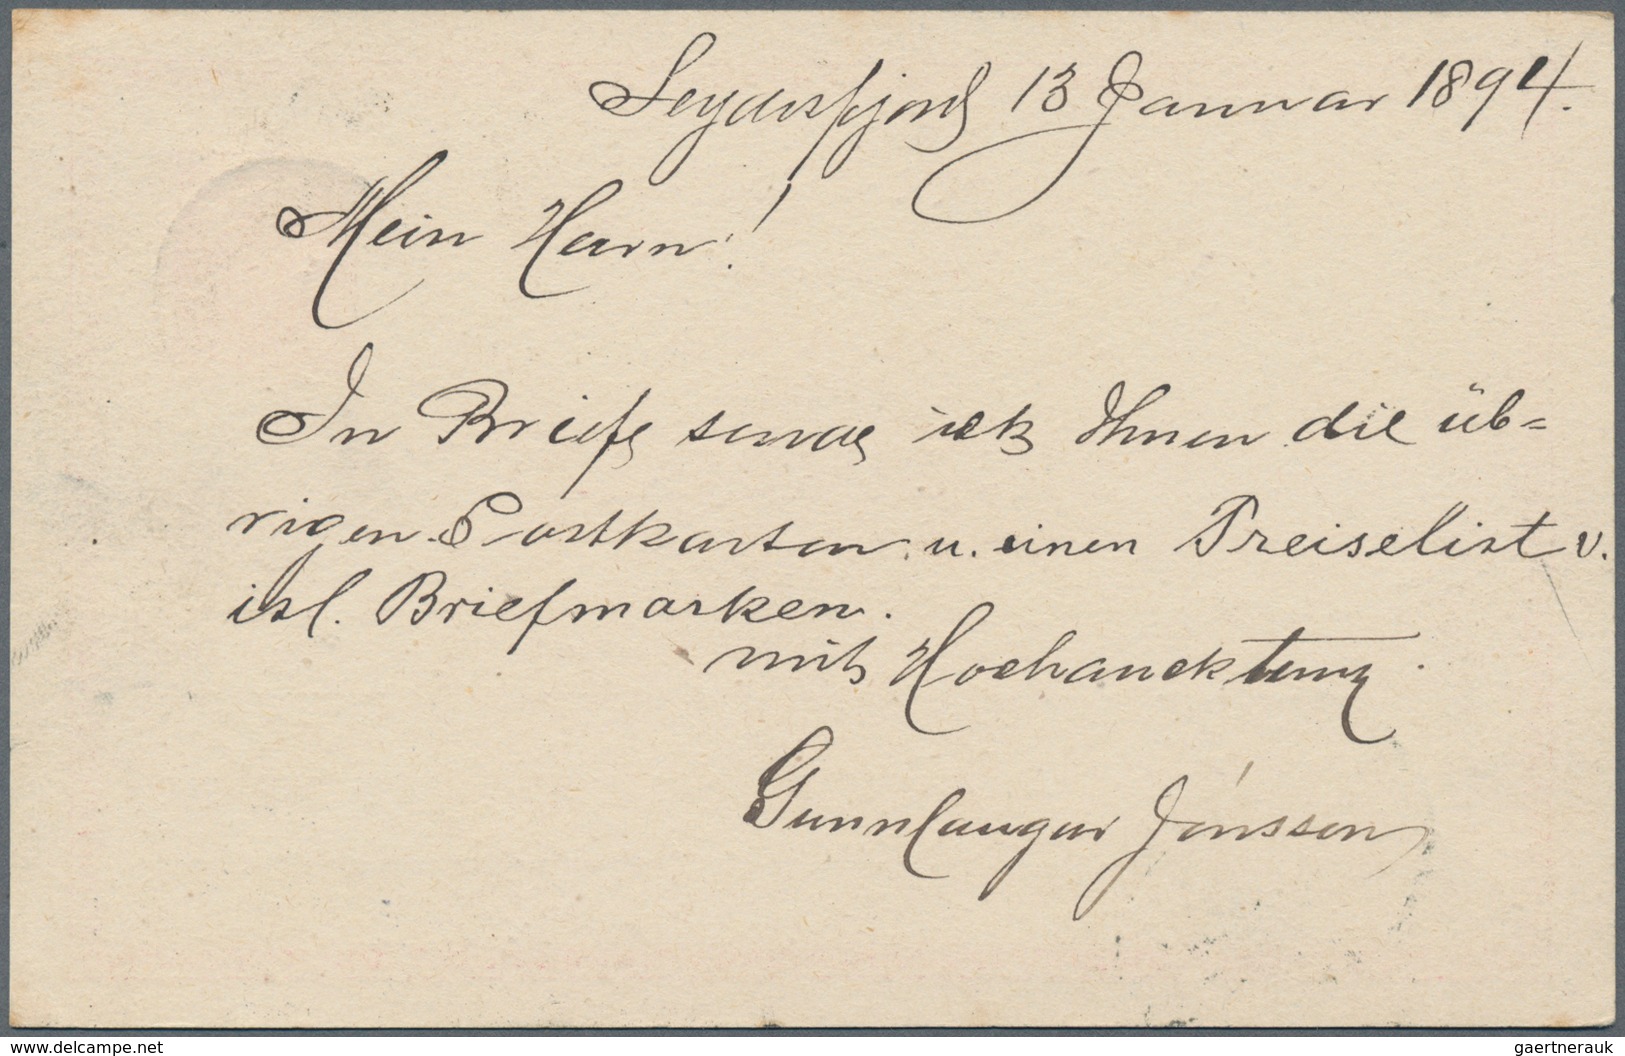 Seydisfjord 13 Januar 1894.
Mein Herrn!
In Briefe sende ich Ihnen die üb=
rigen Postkarten u. einen Preiselist v.
isl. Briefmarken.
mit Hochaucktung.
Gunnlaugur Jónsson
www.delcampe.net
gaertnerauk